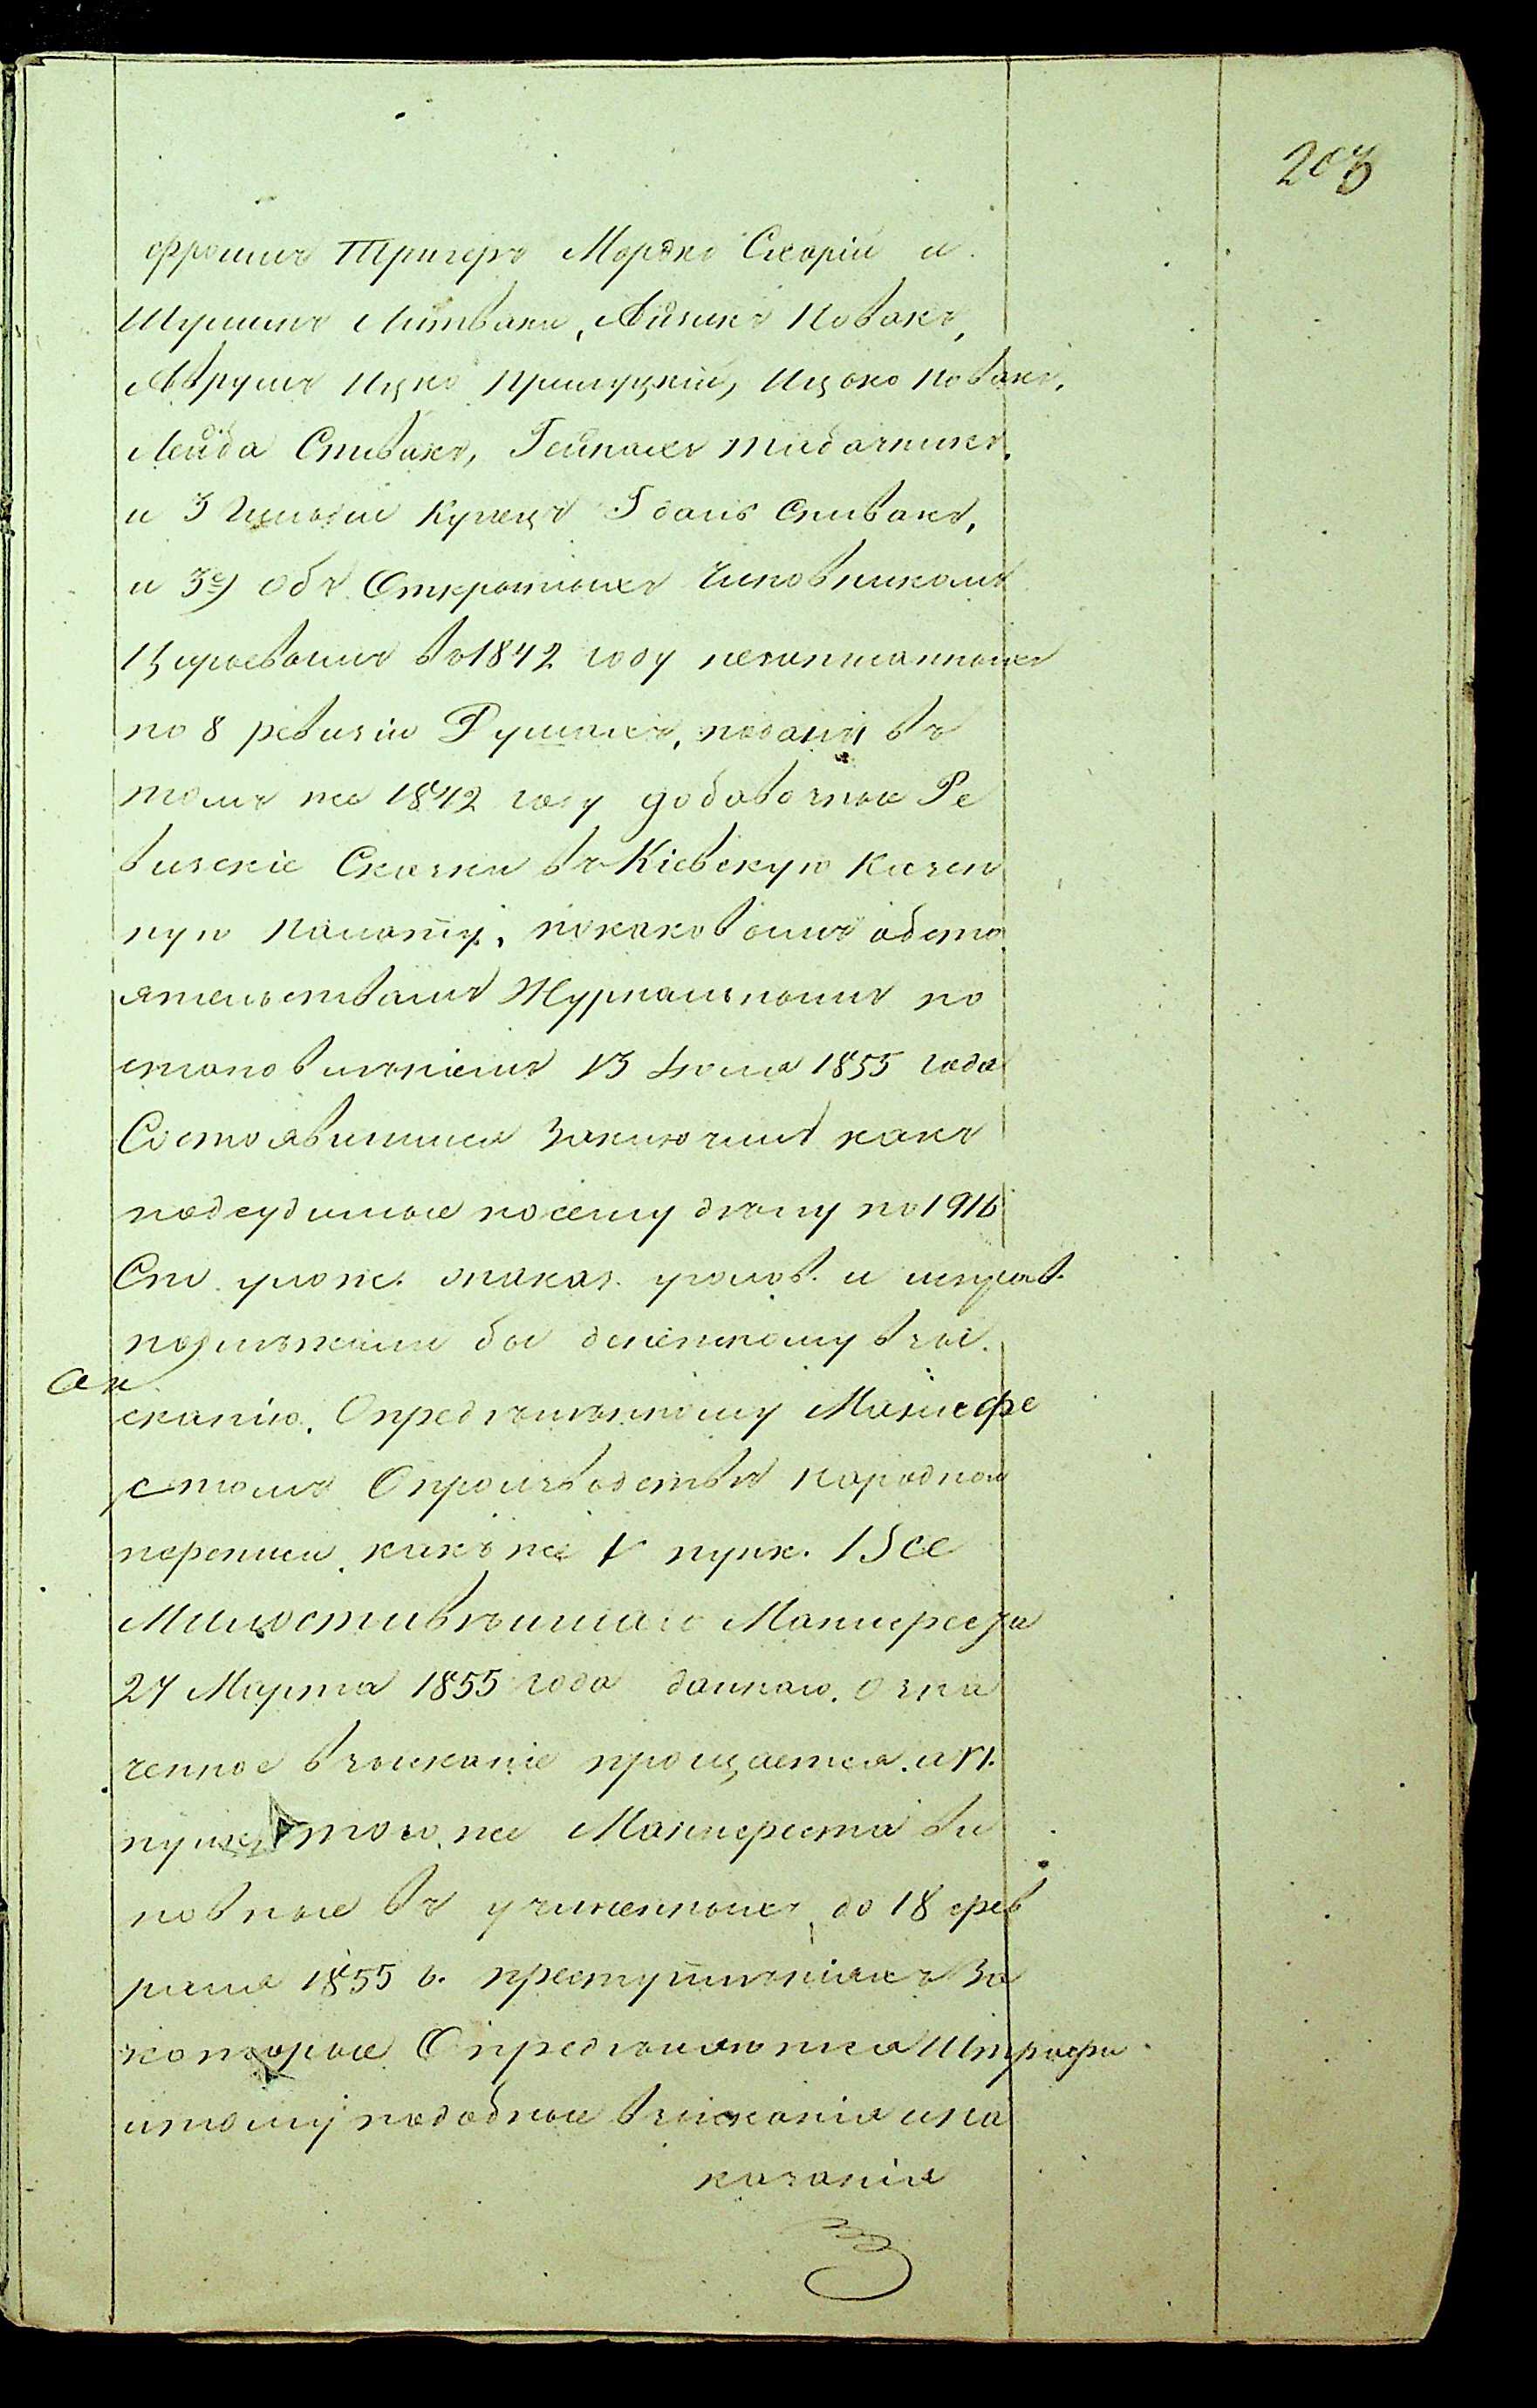 203
фроимъ Тригеръ Мордко Скорій и
Шулимъ Литваки, Айзикъ Новакъ,
Аврумъ Ицко Прилуцкій, Ицько Новакъ,
Лейба Спивакъ, Гейнахъ Табачникъ
и 3 Гильдіи Купецъ Ідаль Спивакъ,
и 3е) Объ Открытыхъ Чиновникомъ
въ 1842 году незаписанныхъ
по 8 ревизіи Душахъ, поданы въ
томъ же 1842 году добавочные Ре
визскіе Сказки въ Кіевскую Казен
ную Палату, покаковымъ обсто
ятельствамъ Журнальнымъ по
становленіемъ 13 Іюля 1855 года
Состоявшимся Заключилъ какъ
подсудимые посему дѣлу по 1916
Ст. улож. онаказ. уголов. и исправ.
подлежали бы денежному взы
сканію, Опредѣленному Манифе
стомъ Опроизводствѣ народной
переписи, какъ же V пунк. Все
Милостивѣйшаго Манифеста
27 Марта 1855 года даннаго, озна
ченное взысканіе прощается, а VI.
пунк. того же Манифеста ви
новные въ учиненныхъ до 18 фев
раля 1855 г. преступленіяхъ За
которые Опредѣляются Штрафы
итому подобные взысканія ина
казанія